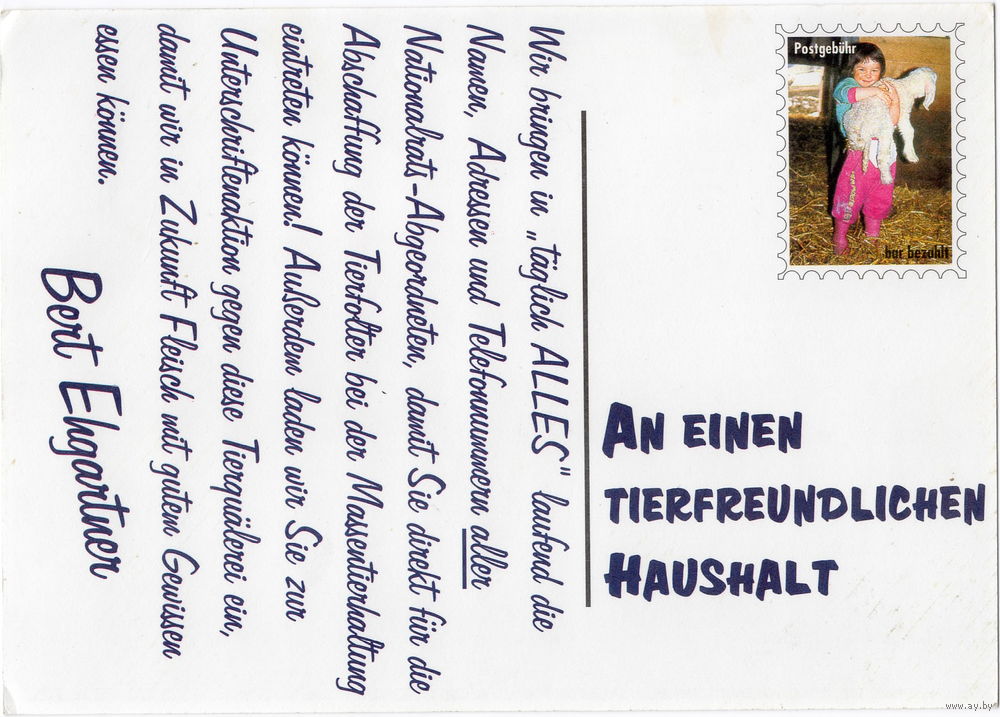 Wir bringen in „täglich ALLES“ laufend die
Namen, Adressen und Telefonnummern aller
Nationalrats-Abgeordneten, damit Sie direkt für die
Abschaffung der Tierfolter bei der Massentierhaltung
eintreten können! Außerdem laden wir Sie zur
Unterschriftenaktion gegen diese Tierquälerei ein,
damit wir in Zukunft Fleisch mit gutem Gewissen
essen können.
Bert Ehgartner
Postgebühr
bar bezahlt
AN EINEN
TIERFREUNDLICHEN
HAUSHALT
www.ay.by